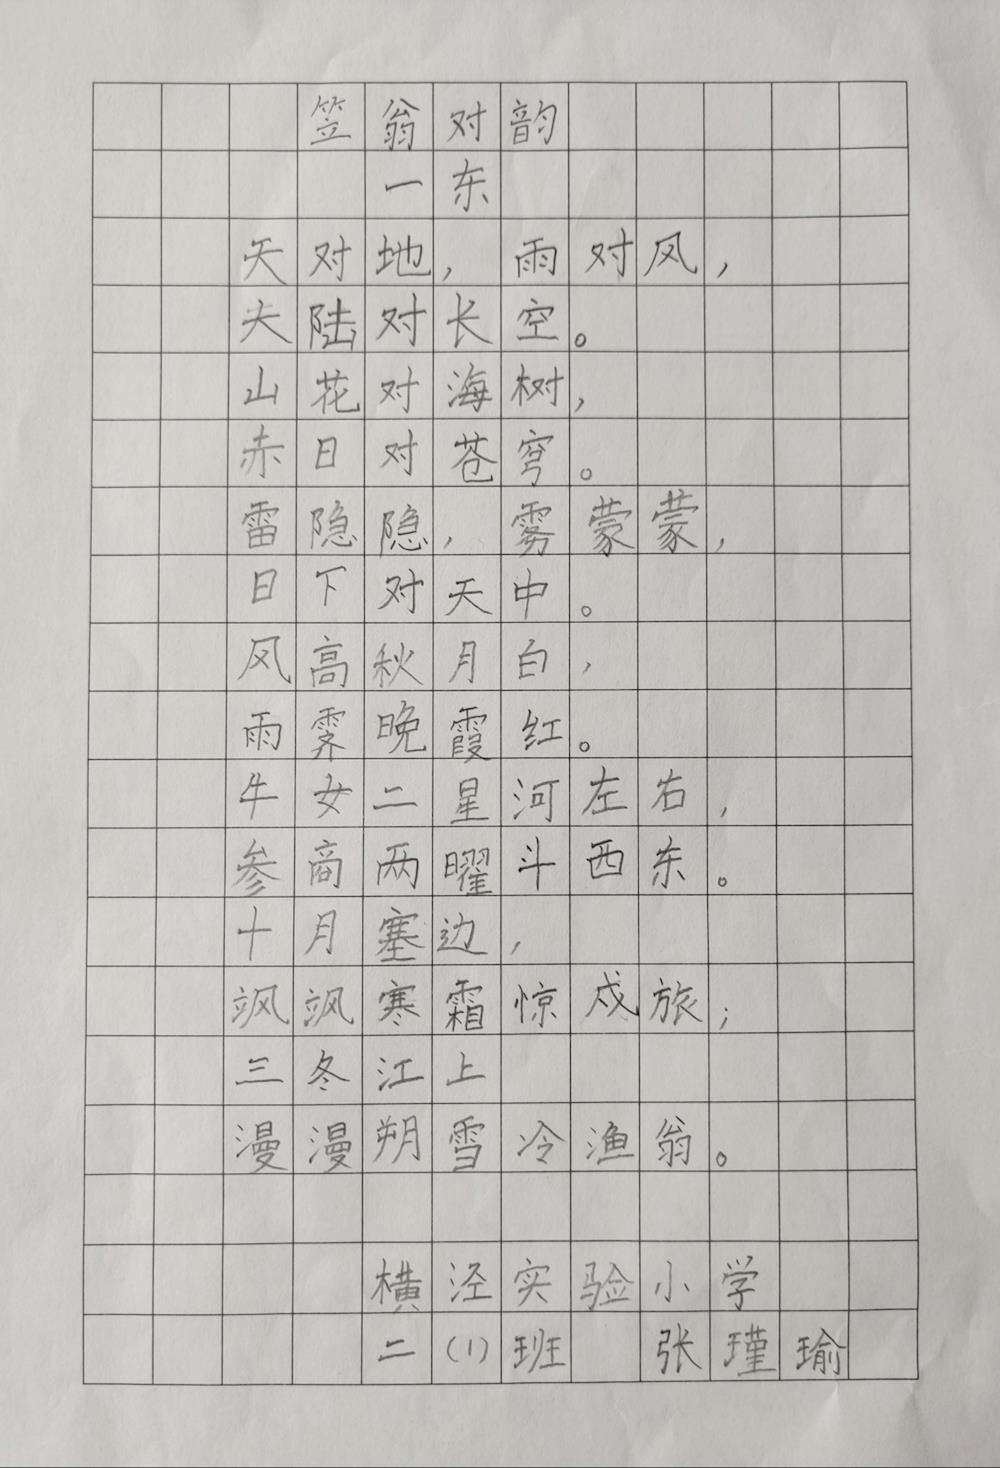 笠翁对韵
一东
天对地，雨对风，
大陆对长空。
山花对海树，
赤日对苍穹。
雷隐隐，雾蒙蒙，
日下对天中。
风高秋月白，
雨霁晚霞红。
牛女二星河左右，
参商两曜斗西东。
十月塞边，
飒飒寒霜惊戍旅；
三冬江上
漫漫朔雪冷渔翁。
横泾实验小学
二（1）班 张瑾瑜